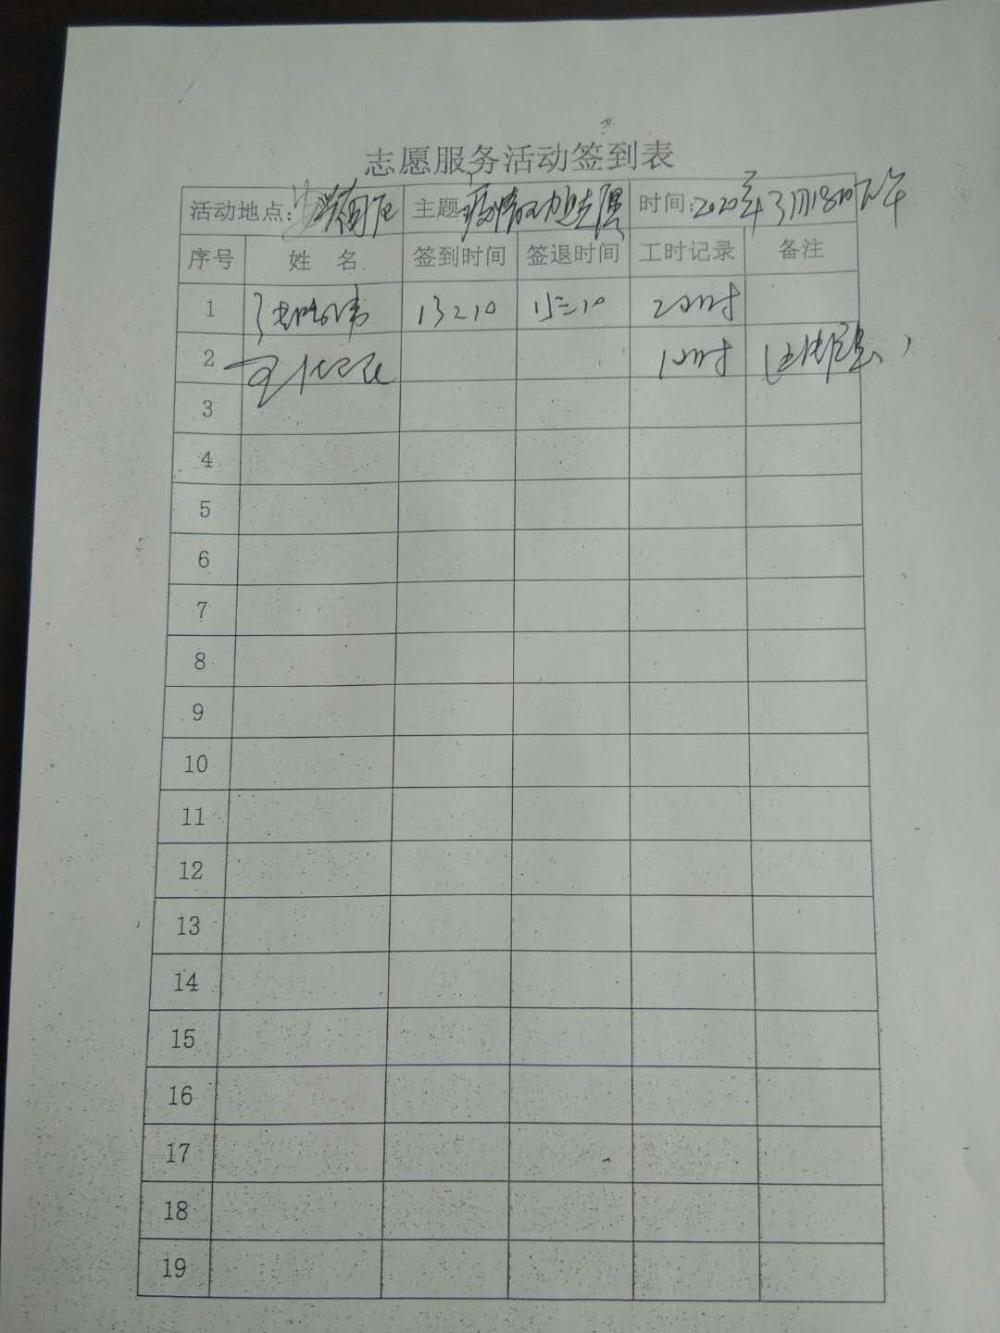 志愿服务活动签到表
活动地点: 主题 时间:2020年3月18日下午
序号 姓 名 签到时间 签退时间 工时记录 备注
1 13:10 15:10 2小时
2 1小时
3
4
5
6
7
8
9
10
11
12
13
14
15
16
17
18
19